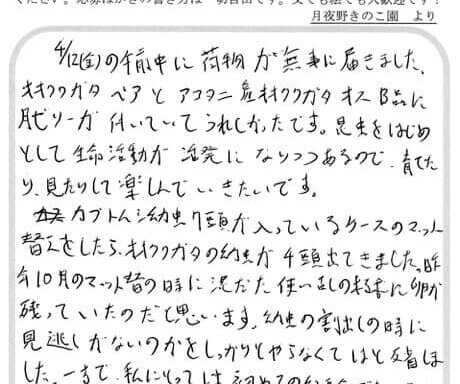 ください。応募はがきの書き方は一切自由です。文でも絵でも大歓迎です！
月夜野きのこ園 より
4/12(金)の午前中に荷物が無事に届きました。
オオクワガタ ペアと アコタニ産オオクワガタ オス B品に
ゼリーが 付いていてうれしかったです。昆虫をはじめ
として 生命活動が 活発に なりつつあるので、育てた
り、見たりして楽しんで いきたいです。
カブトムシ幼虫7頭が入っているケースのマット
替えをしたら、オオクワガタの幼虫が 4頭出てきました。昨
年10月のマット替の時に 混ぜた 使い古しの
残っていたのだと思います。幼虫の割出しの時に
見逃しがないのかを しっかりとやらなくてはと 反省しま
した。一方で、私にとっては 初めての